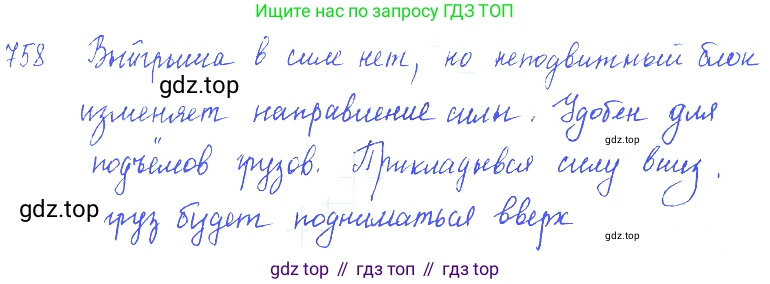 Ищите нас по запросу ГДЗ ТОП
758 Выигрыша в силе нет, но неподвижный блок
gdz.top
изменяет направление силы. Удобен для
gdz.top
подъёмов грузов. Прикладывая силу вниз,
gdz.top
груз будет подниматься вверх
gdz.top
gdz top // гдз топ // gdz top